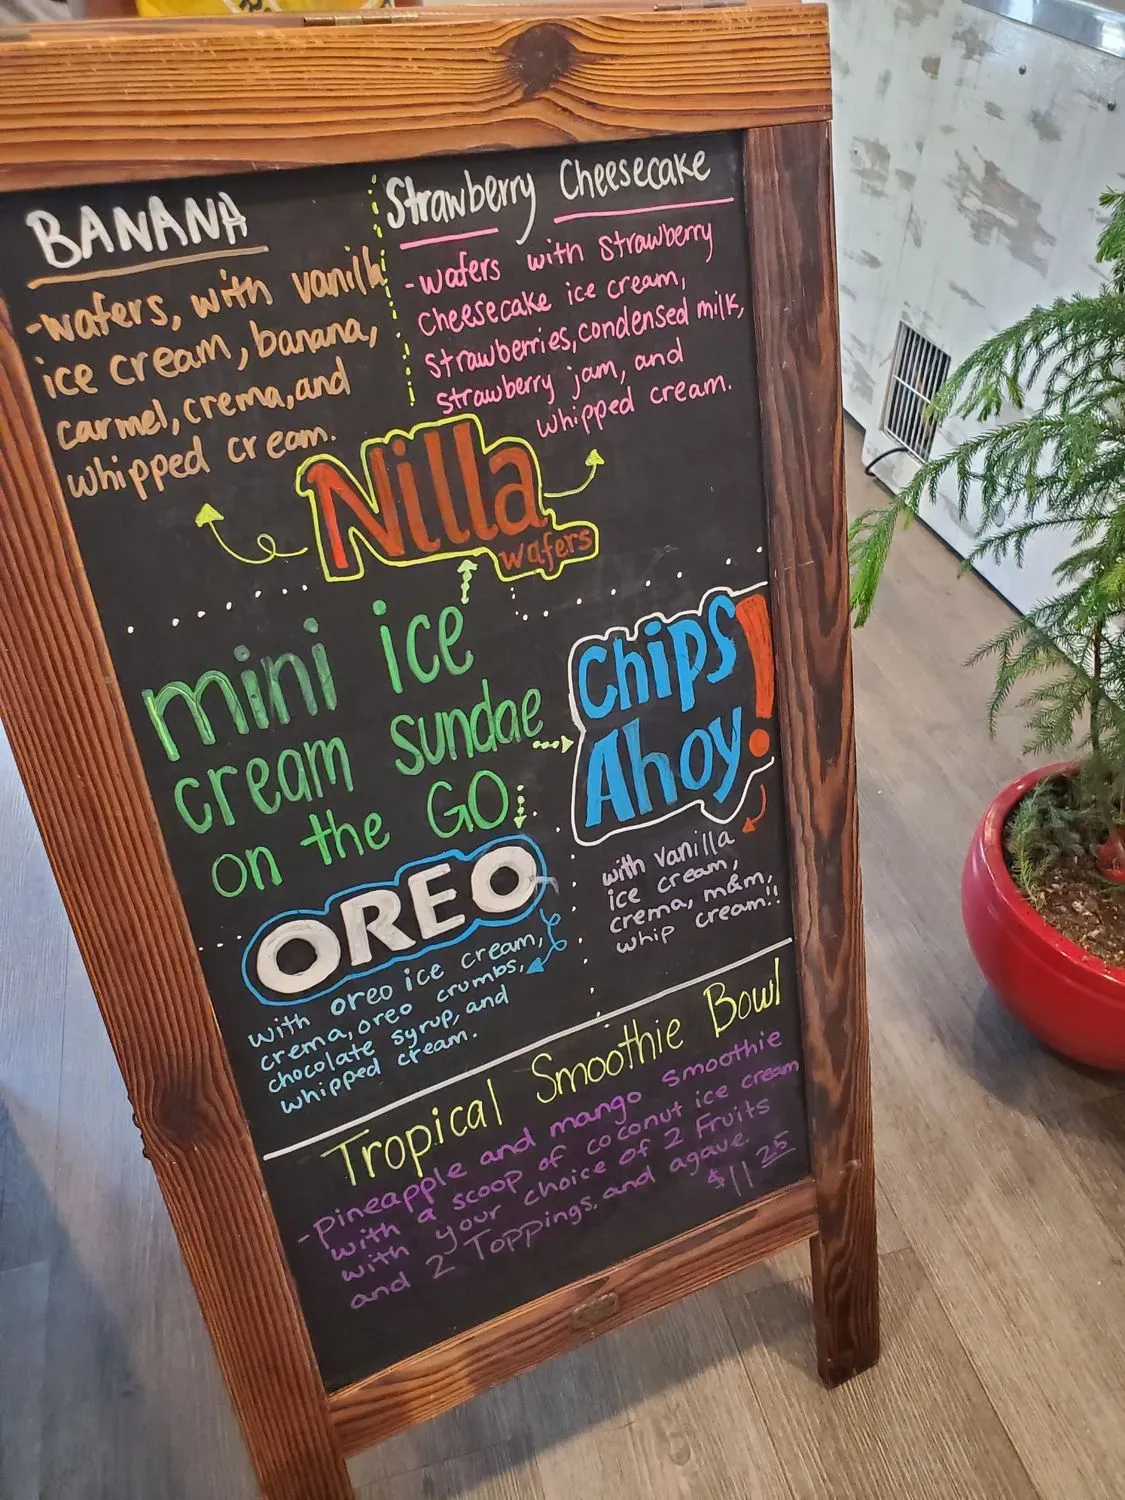 BANANA
-wafers, with vanilla
ice cream, banana,
carmel, crema, and
whipped cream.
Strawberry Cheesecake
-wafers with strawberry
cheesecake ice cream,
strawberries, condensed milk,
strawberry jam, and
whipped cream.
Nilla
wafers
mini ice
cream sundae
on the GO
Chips
Ahoy!
with vanilla
ice cream,
crema, m&m,
whip cream!!
OREO
with oreo ice cream,
crema, oreo crumbs,
chocolate syrup, and
whipped cream.
Tropical Smoothie Bowl
-pineapple and mango smoothie
with a scoop of coconut ice cream
with your choice of 2 Fruits
and 2 Toppings, and agave.
$11 25